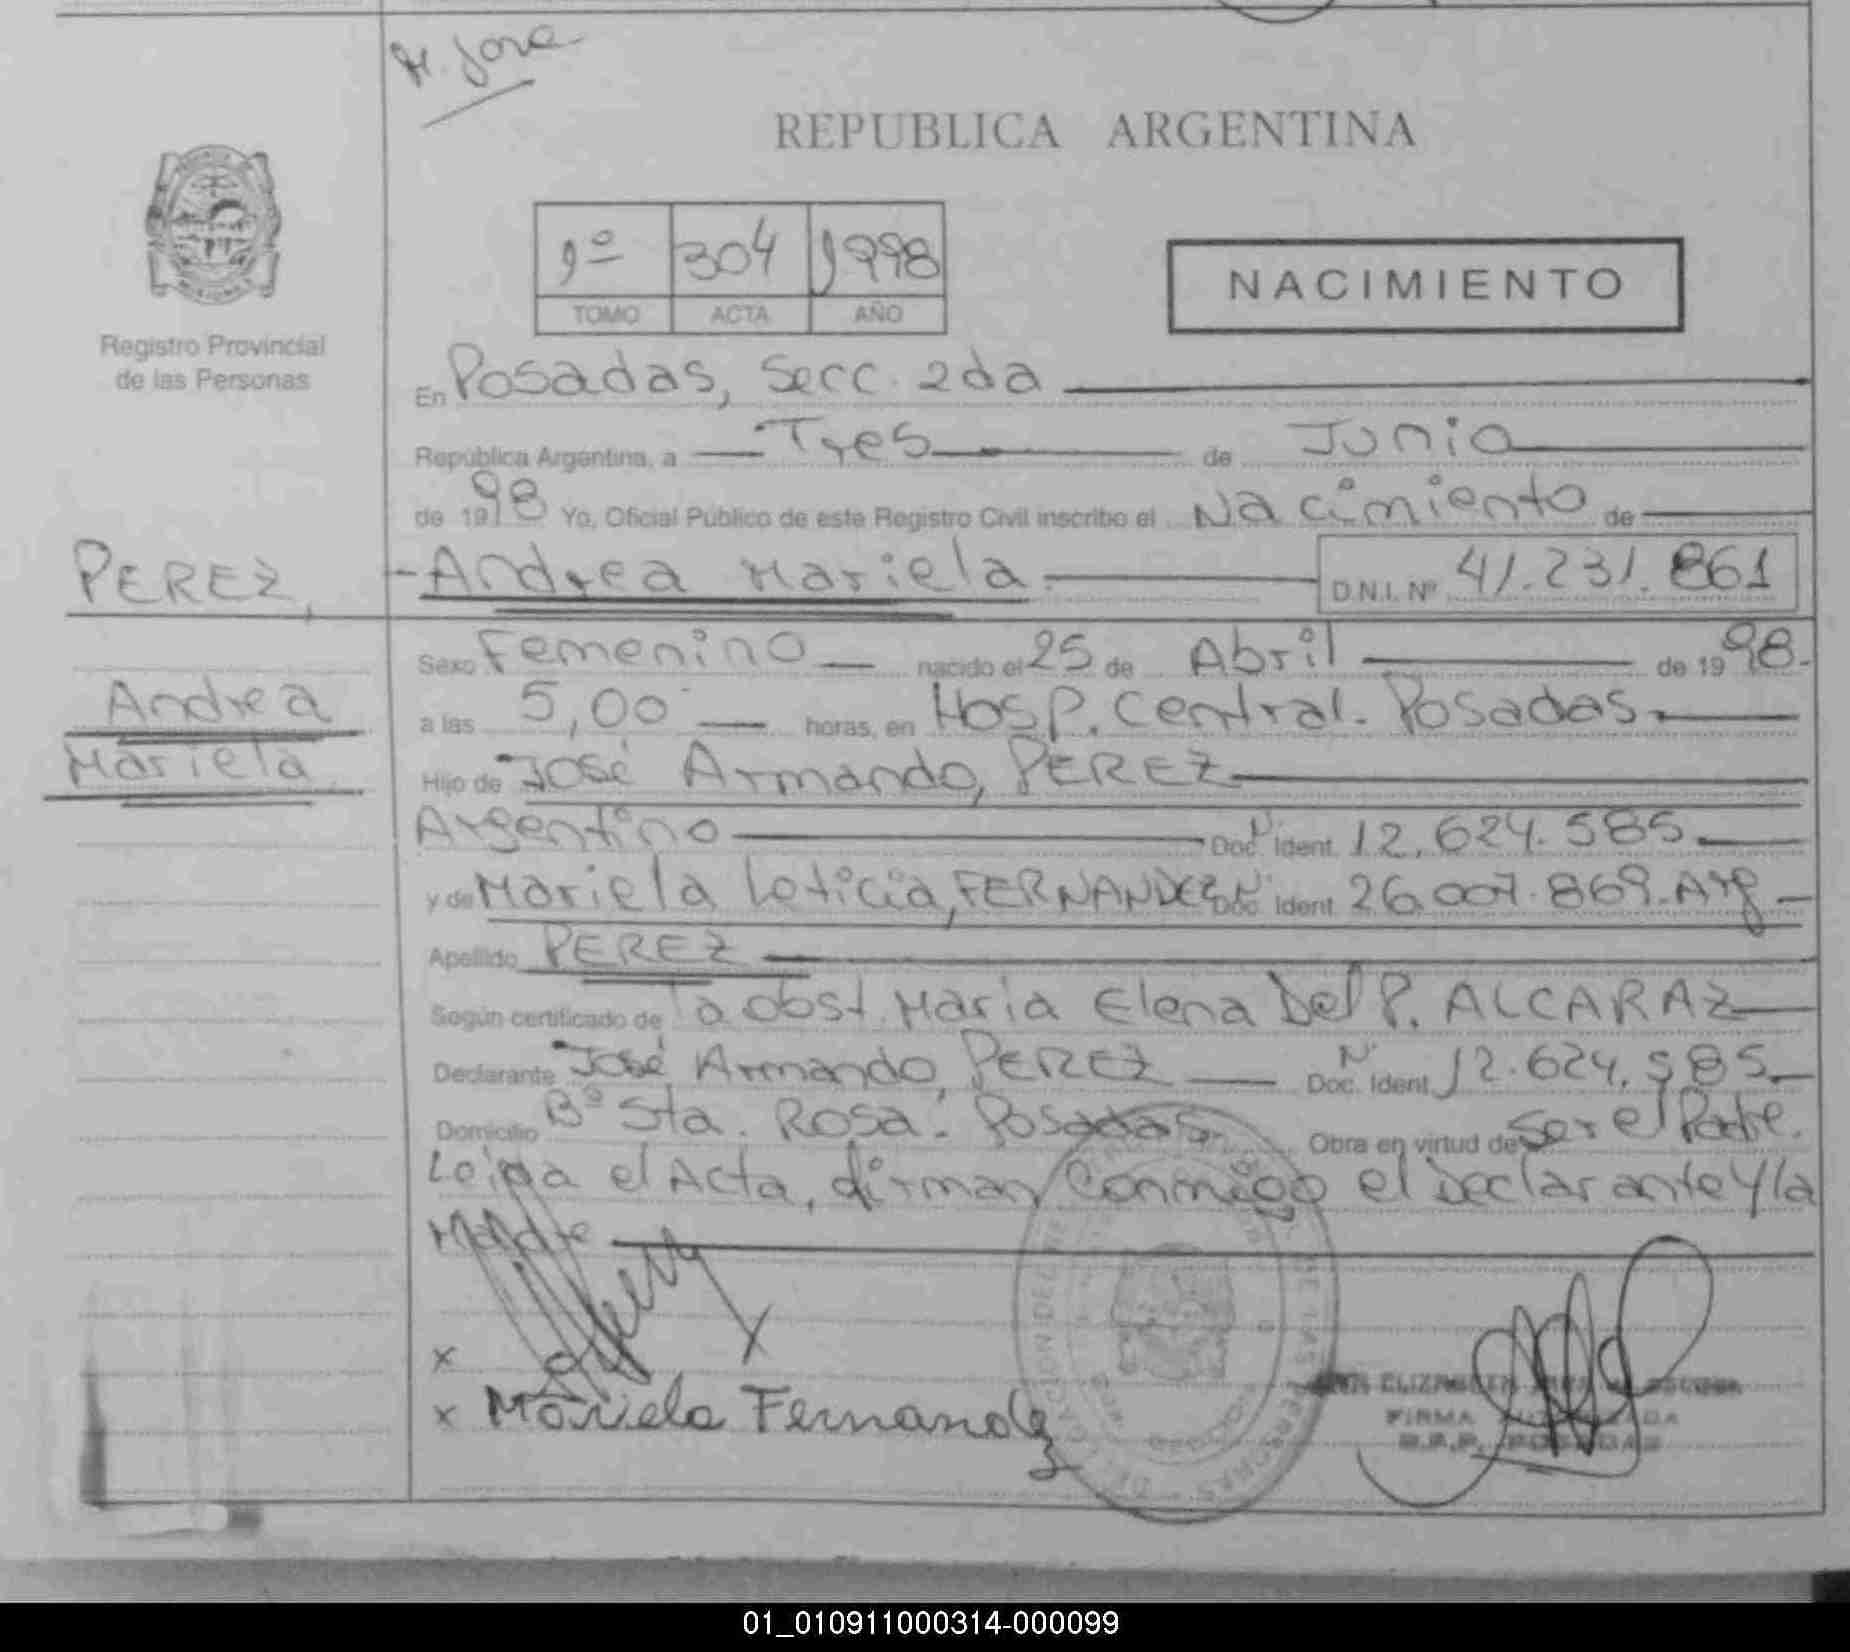 M. José
REPUBLICA ARGENTINA
1º 304 1998
TOMO ACTA AÑO
NACIMIENTO
Registro Provincial
de las Personas
En Posadas, Secc. 2da
República Argentina, a Tres de Junio
de 1998 Yo, Oficial Público de este Registro Civil inscribo el Nacimiento de
PEREZ, Andrea Mariela. D.N.I. Nº 41.231.861
Sexo Femenino nacido el 25 de Abril de 1998.
Andrea
Mariela
a las 5,00 horas, en Hosp. Central. Posadas.
Hijo de José Armando, PEREZ
Argentino Doc. Ident. Nº 12.624.585.
y de Mariela Leticia, FERNANDEZ Doc. Ident. Nº 26.007.869. Arg
Apellido PEREZ
Según certificado de la obst. Maria Elena Del P. ALCARAZ
Declarante José Armando, PEREZ Doc. Ident. Nº 12.624.585.
Domicilio Bº Sta. Rosa. Posadas Obra en virtud de Ser el Padre.
Leida el Acta, firman conmigo el Declarante y la
Madre
x
x Mariela Fernandez
FIRMA AUTORIZADA
R.P.P. POSADAS
01_010911000314-000099